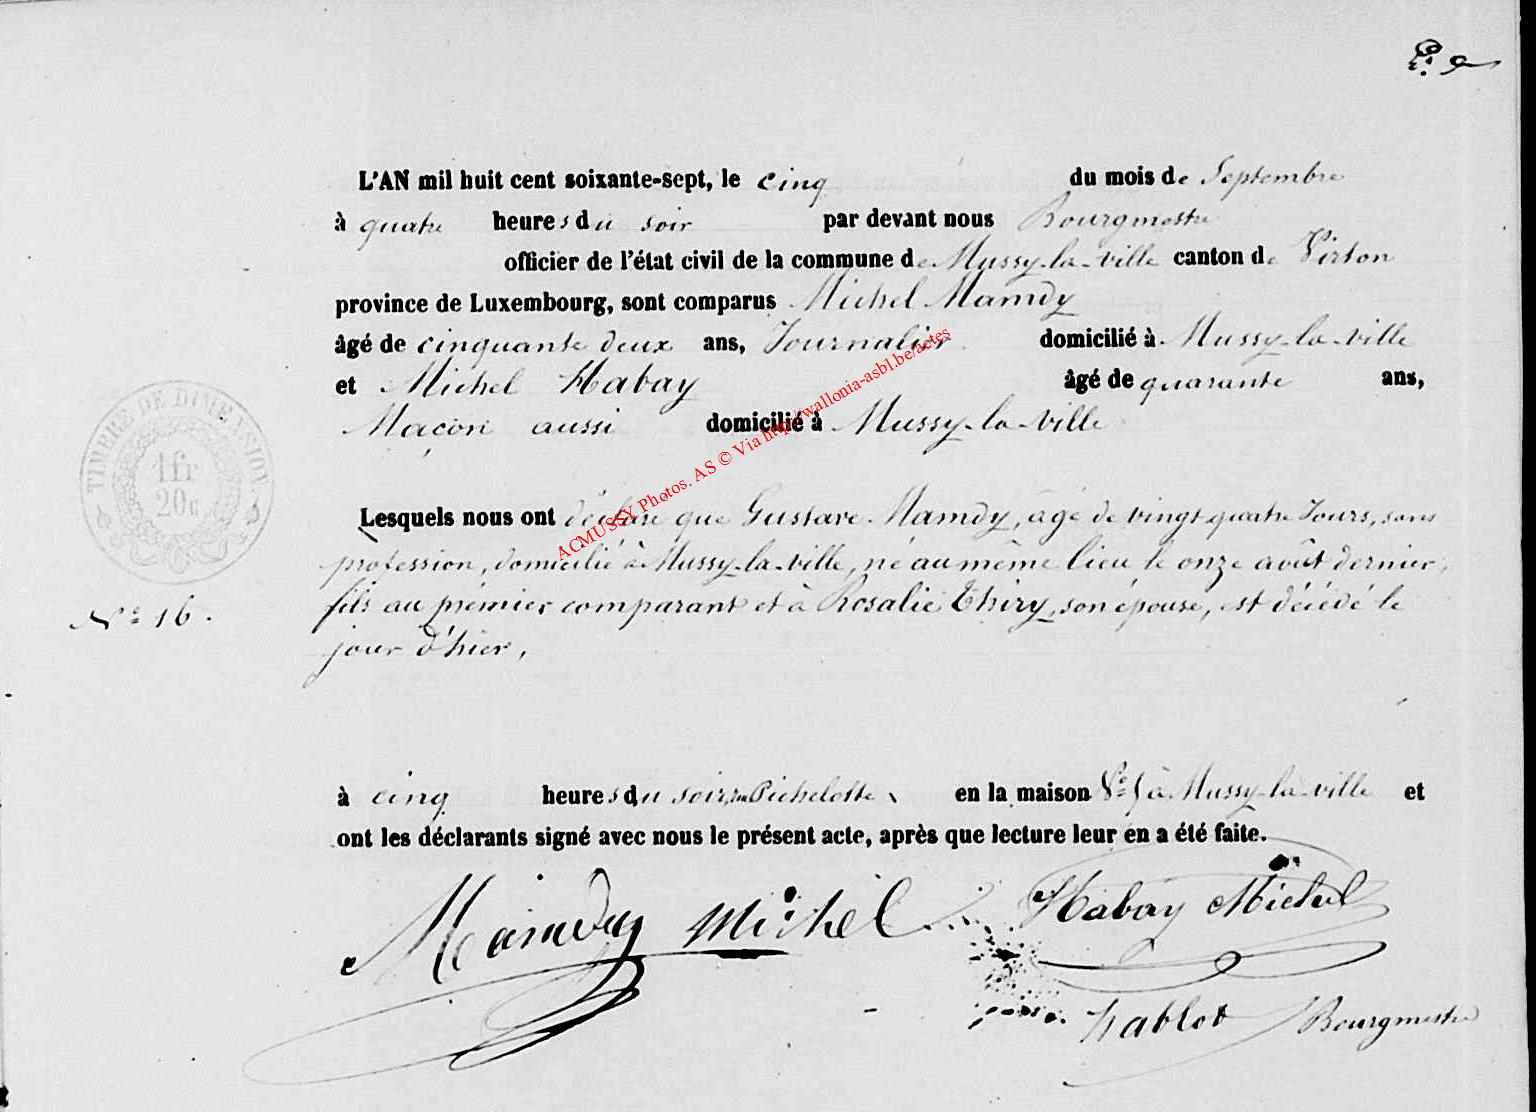 L'AN mil huit cent soixante-sept, le cinq du mois de Septembre
à quatre heures du soir par devant nous Bourgmestre
officier de l'état civil de la commune de Mussy-la-ville canton de Virton
province de Luxembourg, sont comparus Michel Mamdy
âgé de cinquante deux ans, Journalier domicilié à Mussy-la-ville
et Michel Habay âgé de quarante ans,
Maçon aussi domicilié à Mussy-la-ville
TIMBRE DE DIMENSION
1fr
20c
Lesquels nous ont déclaré que Gustave Mamdy, âgé de vingt quatre Jours, sans
profession, domicilié à Mussy-la-ville, né au même lieu le onze août dernier,
fils au prémier comparant et à Rosalie Thiry, son épouse, est décédé le
Nº 16.
jour d'hier,
à cinq heures du soir, Pichelotte en la maison à Mussy-la-ville et
ont les déclarants signé avec nous le présent acte, après que lecture leur en a été faite.
Mamdy Michel Habay Michel
Bourgmestre
ACMUSSY Photos. AS © Via http://wallonia-asbl.be/actes